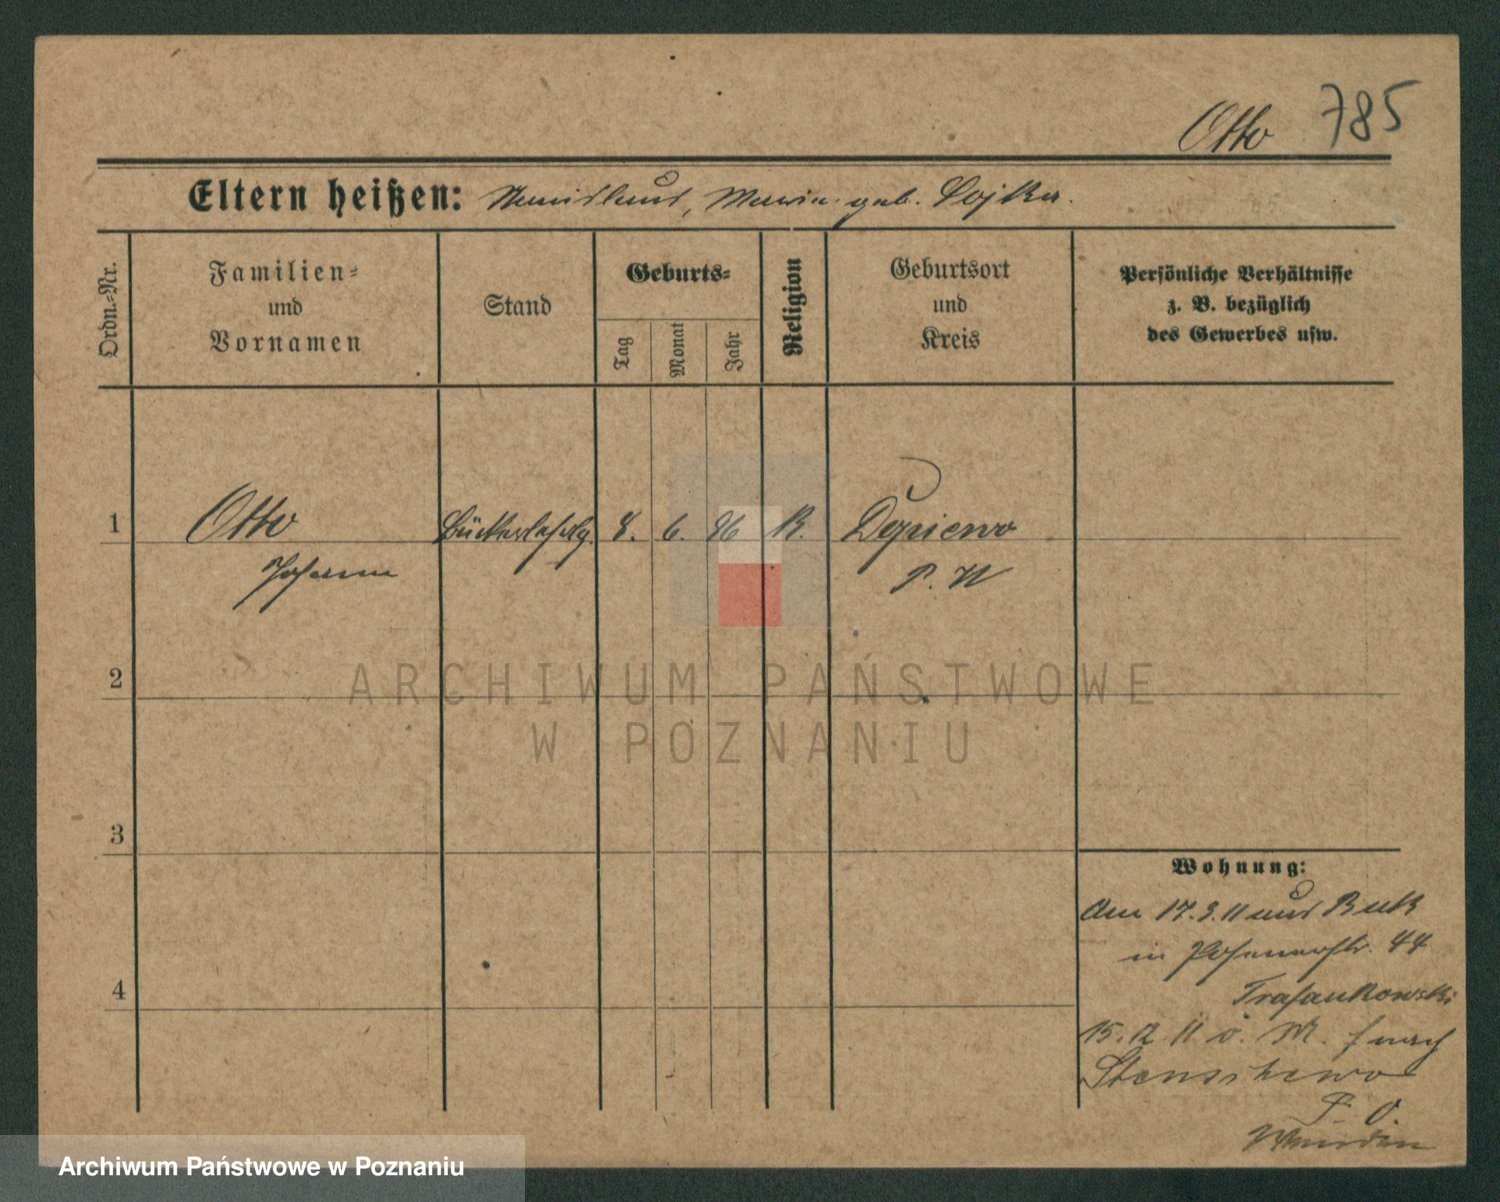 Otto 785
Eltern heißen: Stanislaus, Maria geb. Lojka.
Ordn.=Nr.
Familien=
und
Vornamen
Stand
Geburts=
Tag
Monat
Jahr
Religion
Geburtsort
und
Kreis
Persönliche Verhältnisse
z. B. bezüglich
des Gewerbes usw.
1 Otto 8. 6. 86 K.
Johann P. W
2
3
4
Wohnung:
Am 17.3.11 aus Buk
in Posenerstr. 44
15.12.11 nach
Stenschewo
P. O.
ARCHIWUM PAŃSTWOWE
W POZNANIU
Archiwum Państwowe w Poznaniu